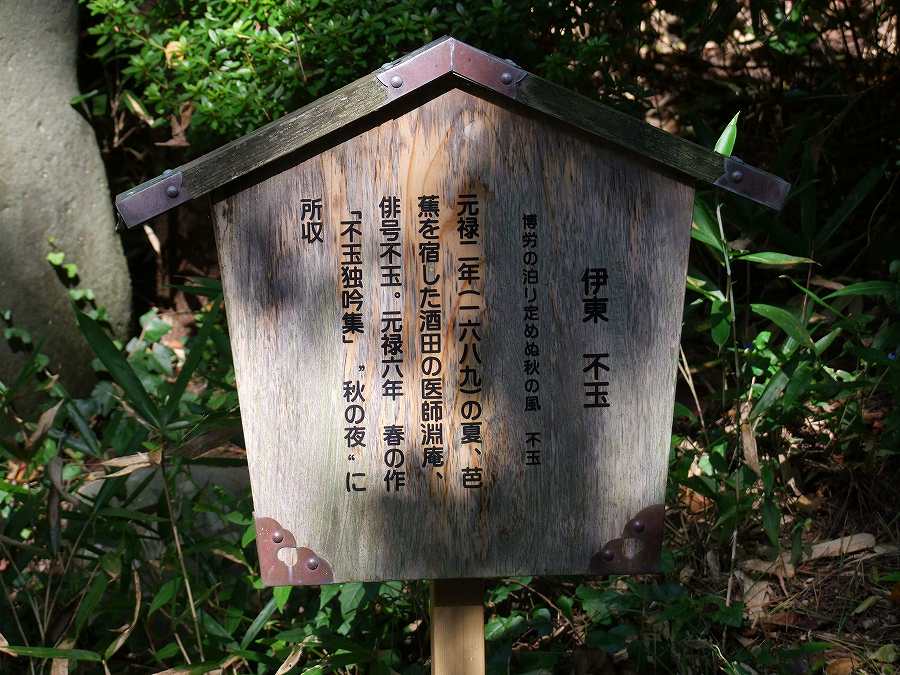 伊東　不玉
博労の泊り定めぬ秋の風　不玉
元禄二年(一六八九)の夏、芭
蕉を宿した酒田の医師淵庵、
俳号不玉。元禄六年　春の作
「不玉独吟集」〝秋の夜〟に
所収